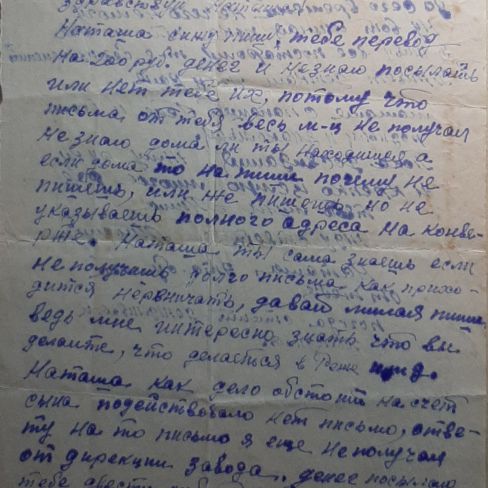 Здравствуй Наташа
Наташа сижу пишу тебе перевод
на 200 руб. денег и незнаю посылать
или нет тебе их, потому что
письма от тебя весь м-ц не получал
не знаю дома ли ты находишься а
если дома то напиши почему не
пишешь, или же пишешь но не
указываешь полного адреса на конве-
рте. Наташа ты сама знаешь если
не получишь долго письма как прихо-
дится нервничать, давай милая пиши
ведь мне интересно знать что вы
делаите, что делаеться в
Наташа как дело обстоит на счет
сына подействовало нет письмо, отве-
ту на то письмо я еще не получал
от дирекции завода. денег посылаю
тебе